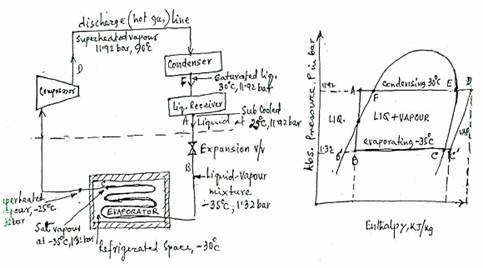 discharge (hot gas) line
Superheated vapour
11.92 bar, 90°c
D
Compressor
Condenser
Saturated liq.
30°c, 11.92 bar
Liq. Receiver
A
Sub Cooled
Liquid at 25°c, 11.92 bar
Expansion v/v
B
Liquid-Vapour
mixture
-35°c, 1.32 bar
EVAPORATOR
Sat. vapour
at -35°c, 1.32 bar
Refrigerated Space, -30°c
Abs. Pressure, P in bar
11.92
1.32
A
F
condensing 30°c
E
D
LIQ.
LIQ+VAPOUR
VAP.
evaporating -35°c
B
C
C'
Enthalpy, KJ/kg